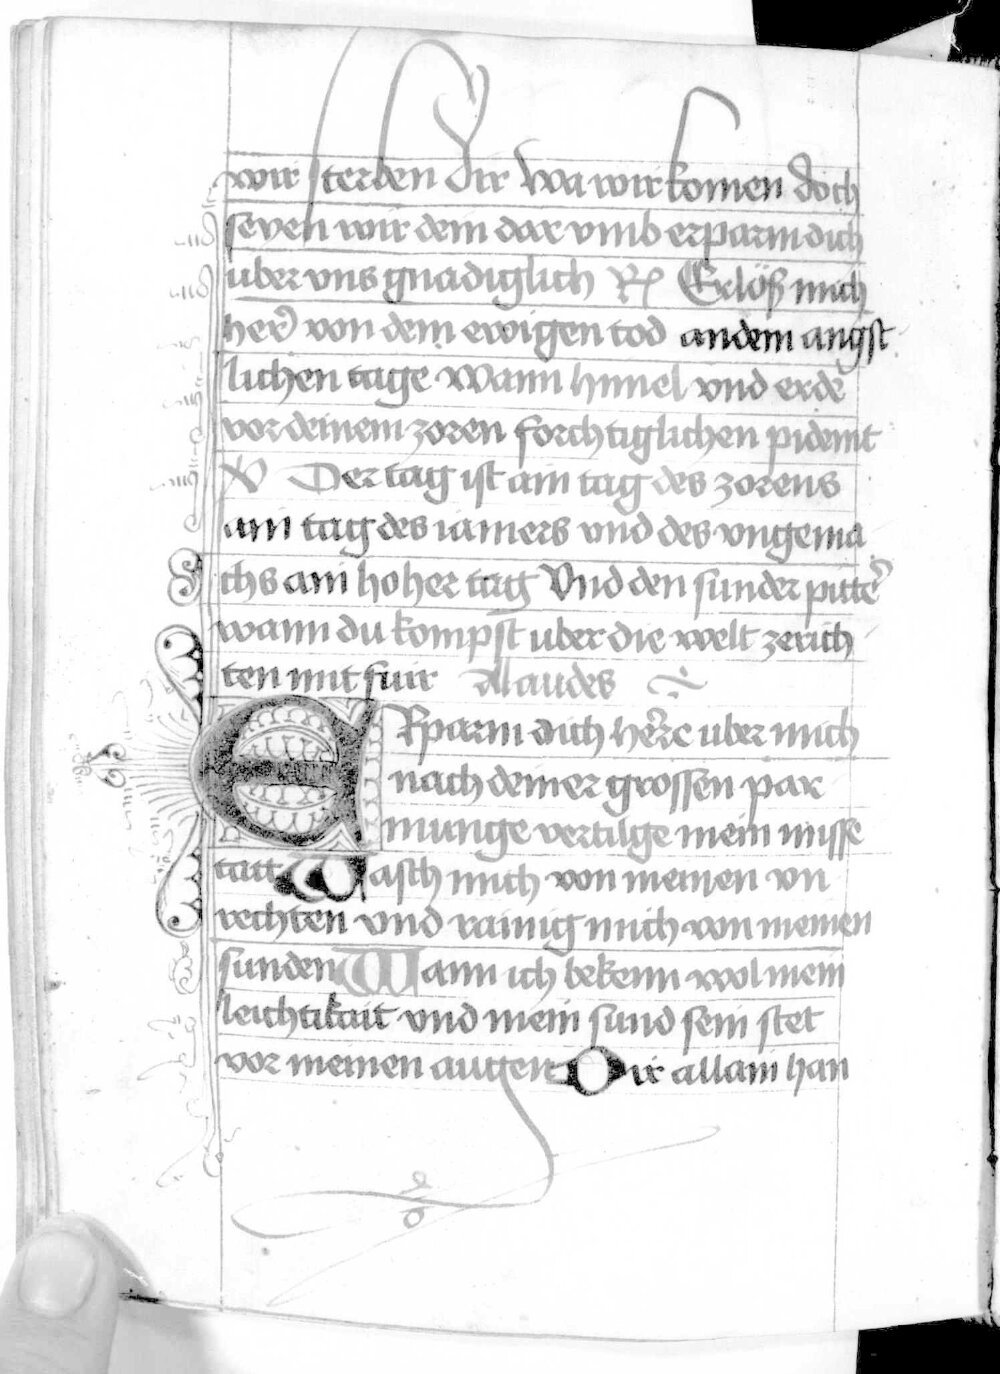 wir sterben Dir Wa wir komen doch
seyen wir dein dar vmb erparm dich
uber vns gnadiglich R Erlöß mich
herr von dem ewigen tod an dem angst
lichen tage Wann himel vnd erde
vor deinem zoren forchtiglichen pidemt
V Der tag ist ain tag des zorens
ain tag des iamers vnd des vngema
chs ain hoher tag Vnd den sunder pitter
wann du kompst uber die welt zerich
ten mit fuir laudes
ERparm dich herre uber mich
nach deiner grossen par
munge vertilge mein misse
tatt Wasch mich von meinen vn
rechten vnd rainig mich von meinen
sunden Wann ich bekenn wol mein
leichtikait vnd mein sund sein stet
vor meinen augen Dir allain han